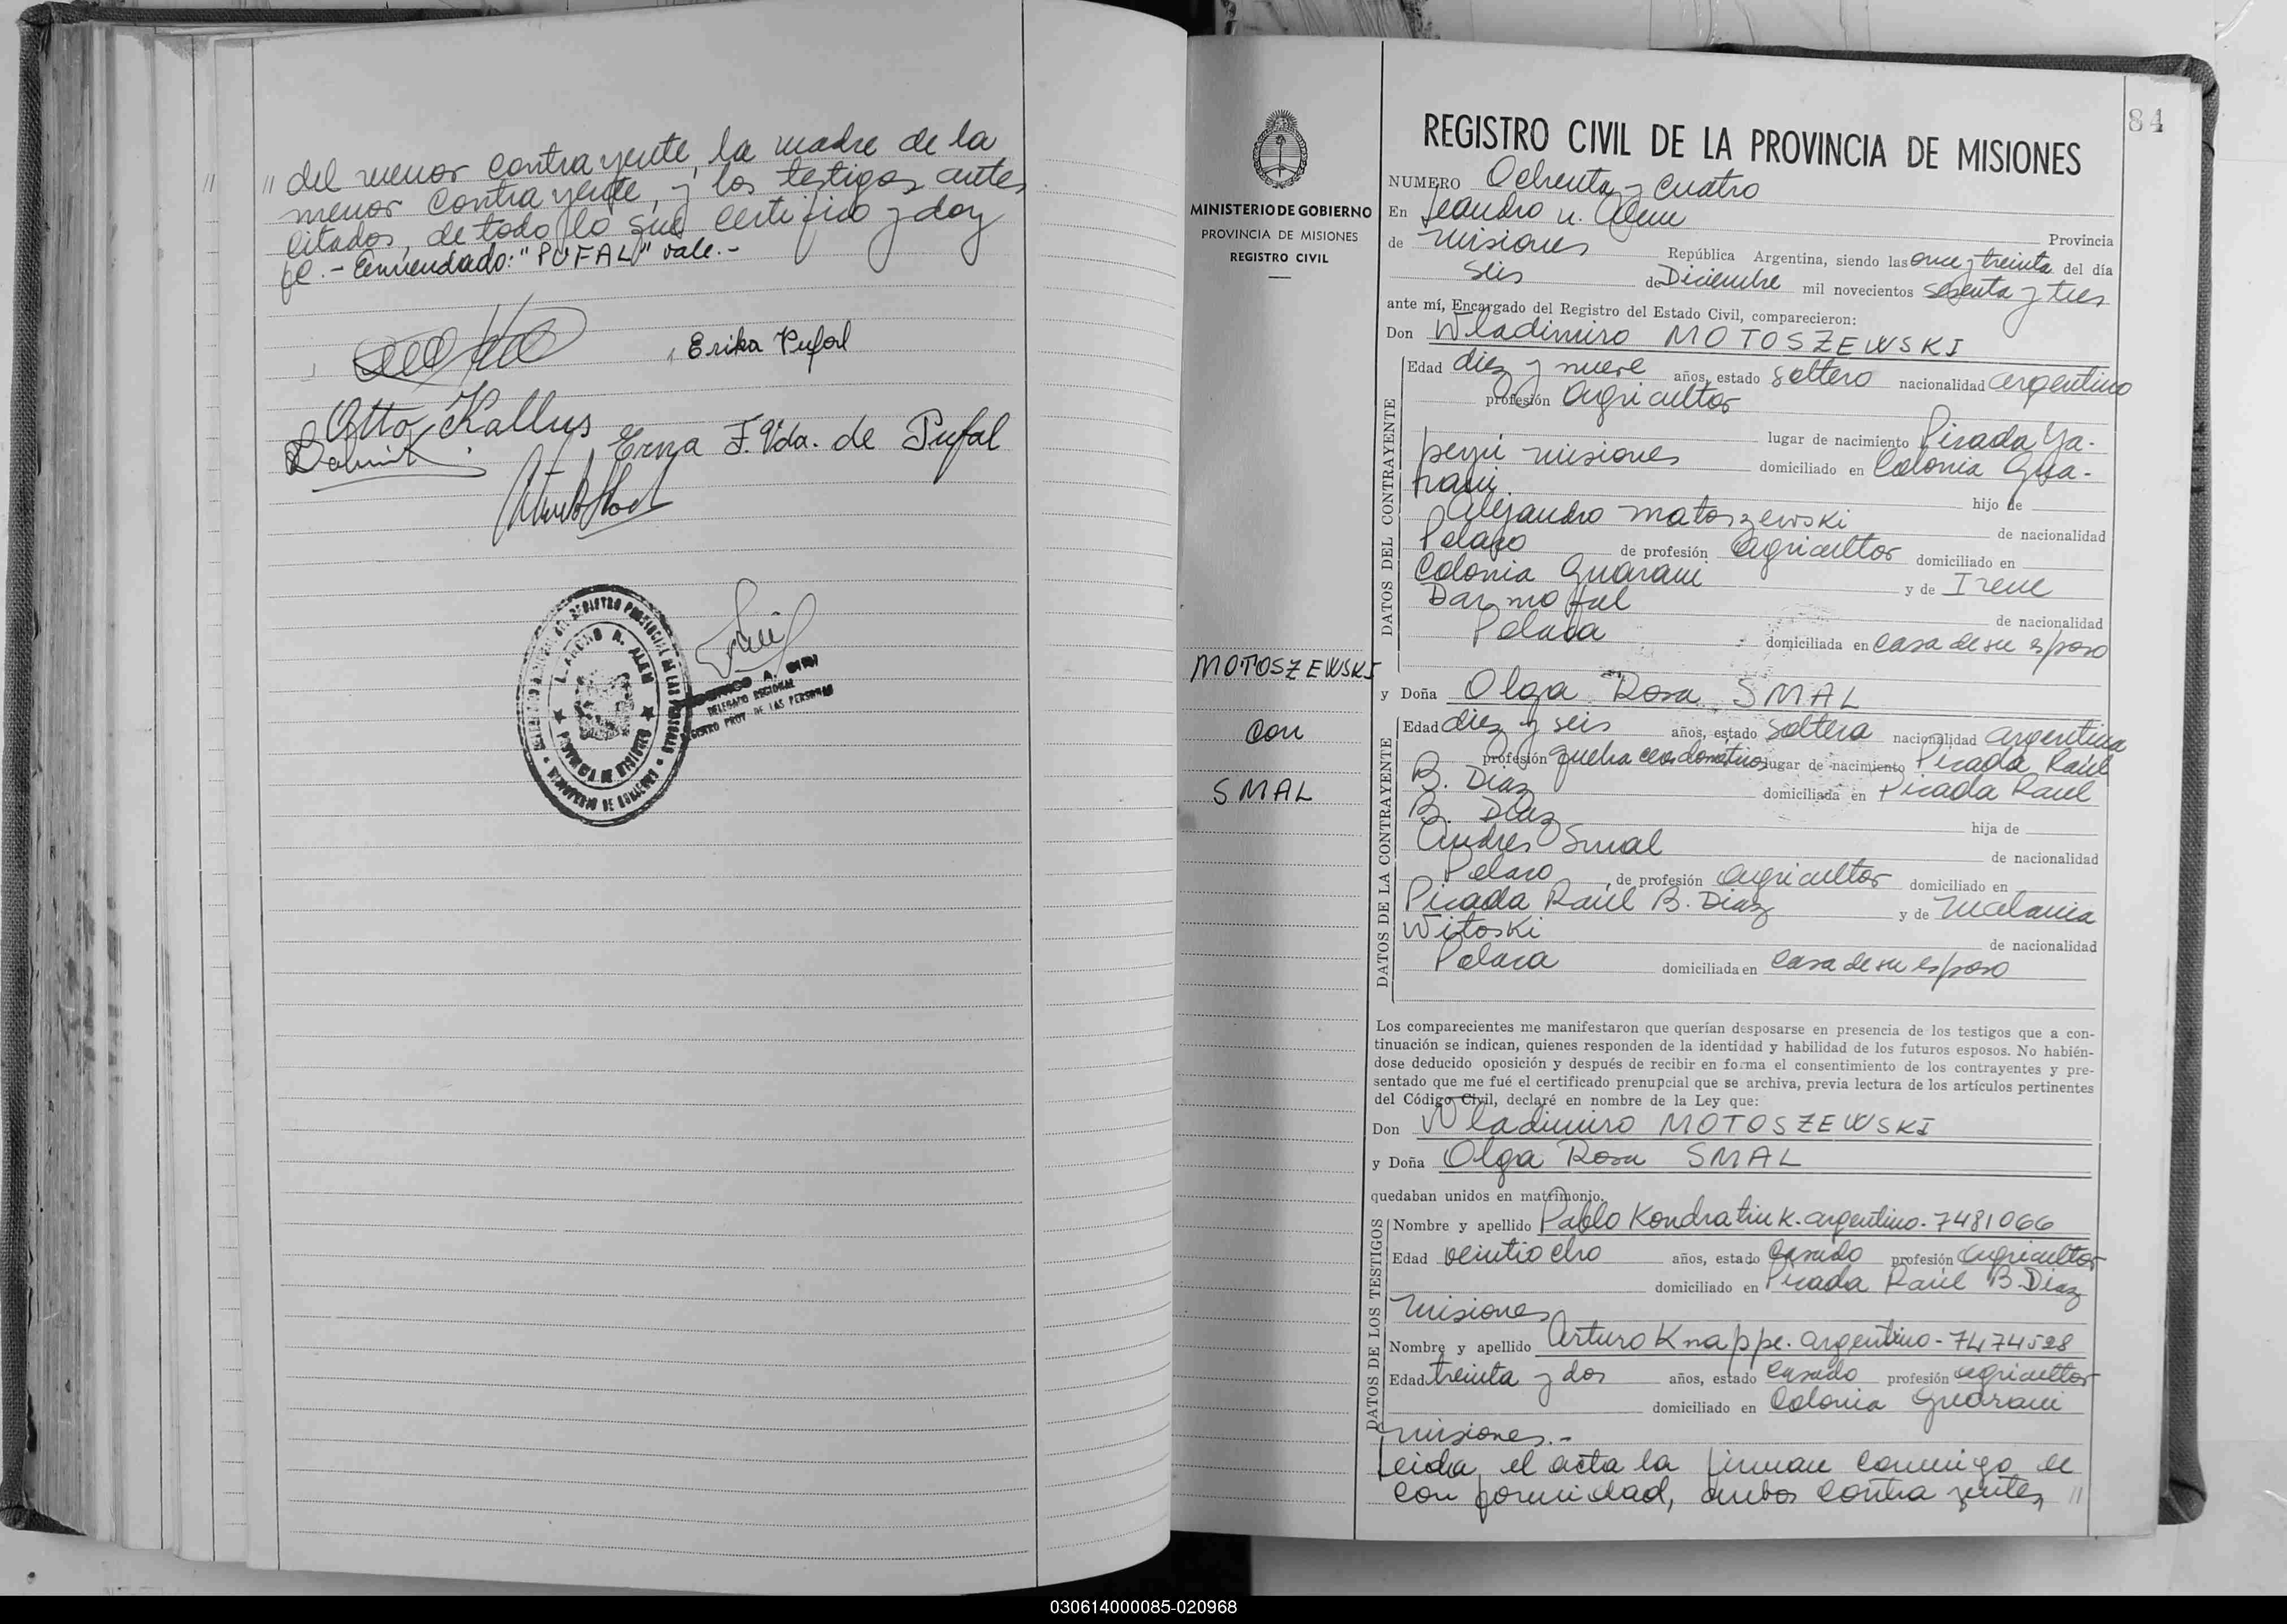 " " del menor contrayente, la madre de la
menor contrayente, y los testigos antes
citados, de todo lo que certifico y doy
fe.- Enmendado: "PUFAL" vale.-
Erika Pufal
Otto Kallus
Erna F. Vda. de Pufal
LEANDRO N. ALEM
PROVINCIA DE MISIONES
DELEGADO REGIONAL
PROV. DE LAS PERSONAS
84
MINISTERIO DE GOBIERNO
PROVINCIA DE MISIONES
REGISTRO CIVIL
MOTOSZEWSKI
con
SMAL
REGISTRO CIVIL DE LA PROVINCIA DE MISIONES
NUMERO Ochenta y cuatro
En Leandro N. Alem
Provincia
de Misiones República Argentina, siendo las once y treinta del día
seis de Diciembre mil novecientos sesenta y tres
ante mí, Encargado del Registro del Estado Civil, comparecieron:
Don Wladimiro MOTOSZEWSKI
DATOS DEL CONTRAYENTE
Edad diez y nueve años, estado soltero nacionalidad argentino
profesión agricultor
lugar de nacimiento Picada Ya-
peyú misiones domiciliado en Colonia Gua-
rani hijo de
Alejandro Motoszewski de nacionalidad
Polaco de profesión agricultor domiciliado en
Colonia Guarani y de Irene
Darmoful de nacionalidad
Polaca domiciliada en casa de su esposo
y Doña Olga Rosa SMAL
DATOS DE LA CONTRAYENTE
Edad diez y seis años, estado soltera nacionalidad argentina
profesión quehaceres domésticos lugar de nacimiento Picada Raúl
B. Diaz domiciliada en Picada Raul
B. Diaz hija de
Andres Smal de nacionalidad
Polaco de profesión agricultor domiciliado en
Picada Raúl B. Diaz y de Melania
Witoski de nacionalidad
Polaca domiciliada en casa de su esposo
Los comparecientes me manifestaron que querían desposarse en presencia de los testigos que a con-
tinuación se indican, quienes responden de la identidad y habilidad de los futuros esposos. No habién-
dose deducido oposición y después de recibir en forma el consentimiento de los contrayentes y pre-
sentado que me fué el certificado prenupcial que se archiva, previa lectura de los artículos pertinentes
del Código Civil, declaré en nombre de la Ley que:
Don Wladimiro MOTOSZEWSKI
y Doña Olga Rosa SMAL
quedaban unidos en matrimonio.
DATOS DE LOS TESTIGOS
Nombre y apellido Pablo Kondratiuk. argentino. 7481066
Edad veintiocho años, estado casado profesión agricultor
domiciliado en Picada Raúl B. Diaz
Misiones
Nombre y apellido Arturo Knappe. argentino - 7474528
Edad treinta y dos años, estado casado profesión agricultor
domiciliado en Colonia Guarani
misiones.-
Leida el acta la firman conmigo de
conformidad, ambos contrayentes, "
030614000085-020968